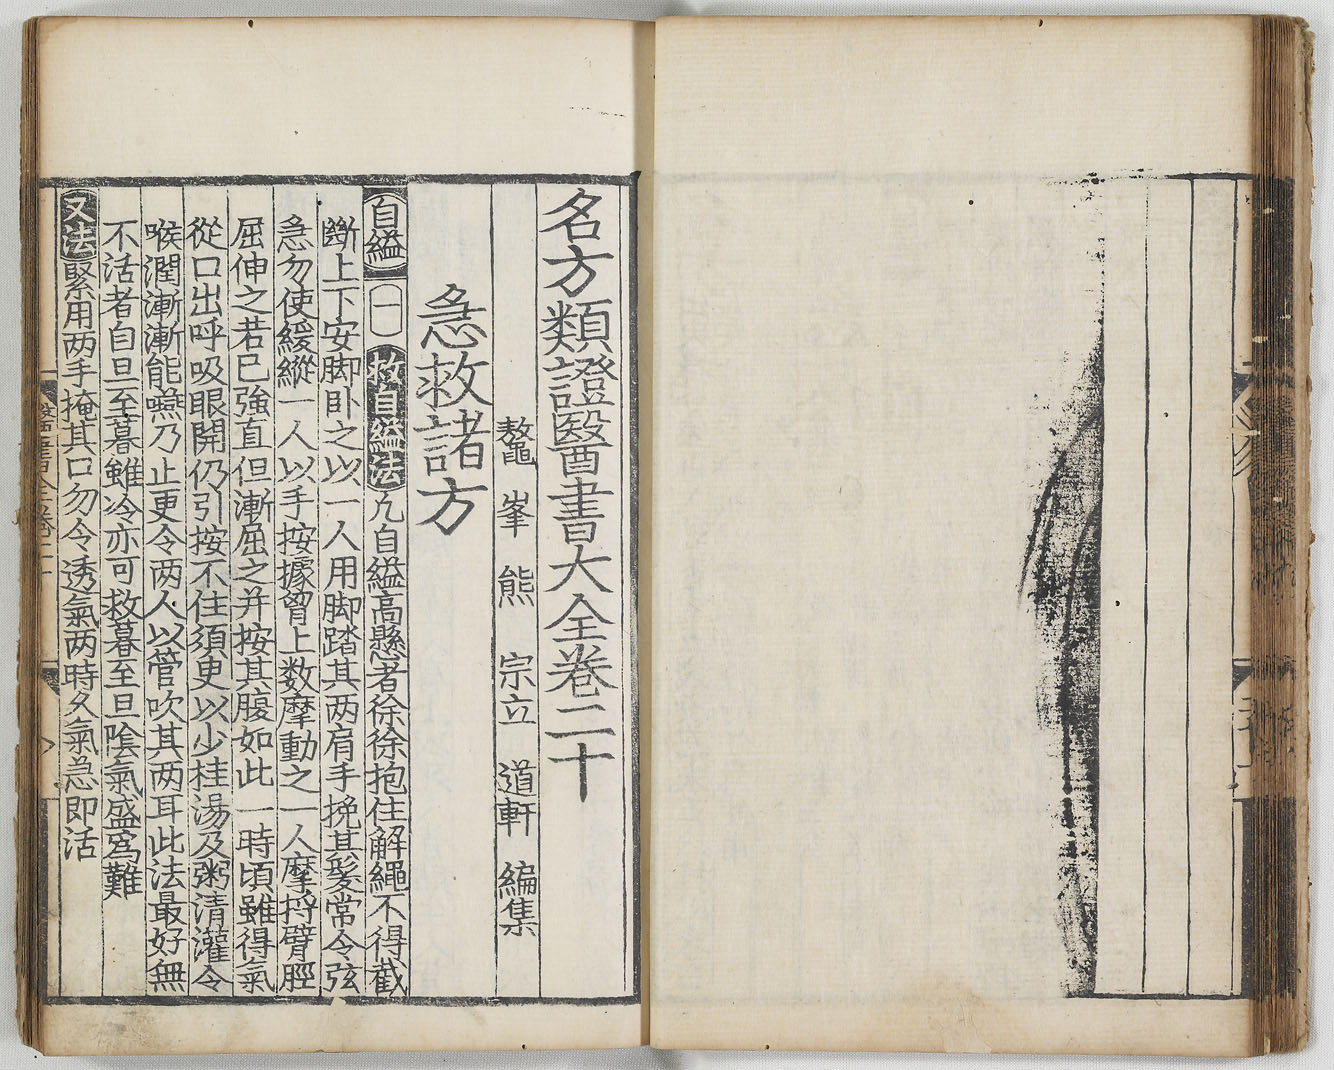 名方類證醫書大全卷二十
鼇峯熊宗立道軒編集
急救諸方
自縊 一 救自縊法 凢自縊高懸者徐徐抱住解繩不得截
斷上下安脚卧之以一人用脚踏其两肩手挽其髮常令弦
急勿使緩縱一人以手按據胷上数摩動之一人摩捋臂脛
屈伸之若已強直但漸屈之并按其腹如此一時頃雖得氣
從口出呼吸眼開仍引按不住須臾以少桂湯及粥清灌令
喉潤漸漸能嚥乃止更令两人以管吹其两耳此法最好無
不活者自旦至暮雖冷亦可救暮至旦陰氣盛為難
又法 緊用两手掩其口勿令透氣两時久氣急即活